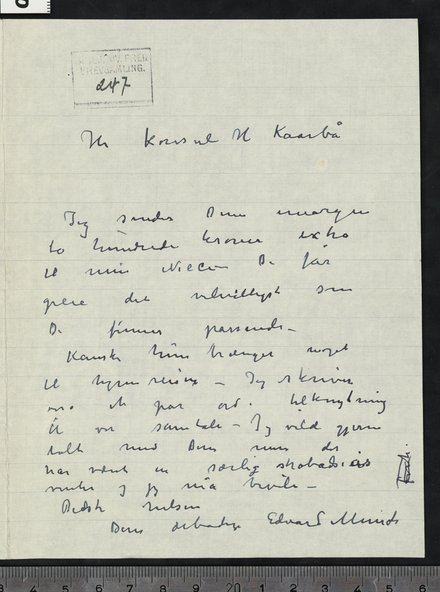 BREVSAMLING.
247
Hr Konsul H Kaarbø
Jeg sender Dem imorgen
to hundrede kroner extra
til min Niece. De får
gjøre det velvilligst som
De finner passende –
Kanske hun trænger noget
til hjemreisen – Jeg skriver
et par ord. tilknytning
til vor samtale – Jeg vild gjerne
talt med Dem men det
har været en særlig strabadsiøs
vinter jeg må hvile –
Bedste hilsen
Deres ærbødige Edvard Munch
20
4 5 6 7 8 9